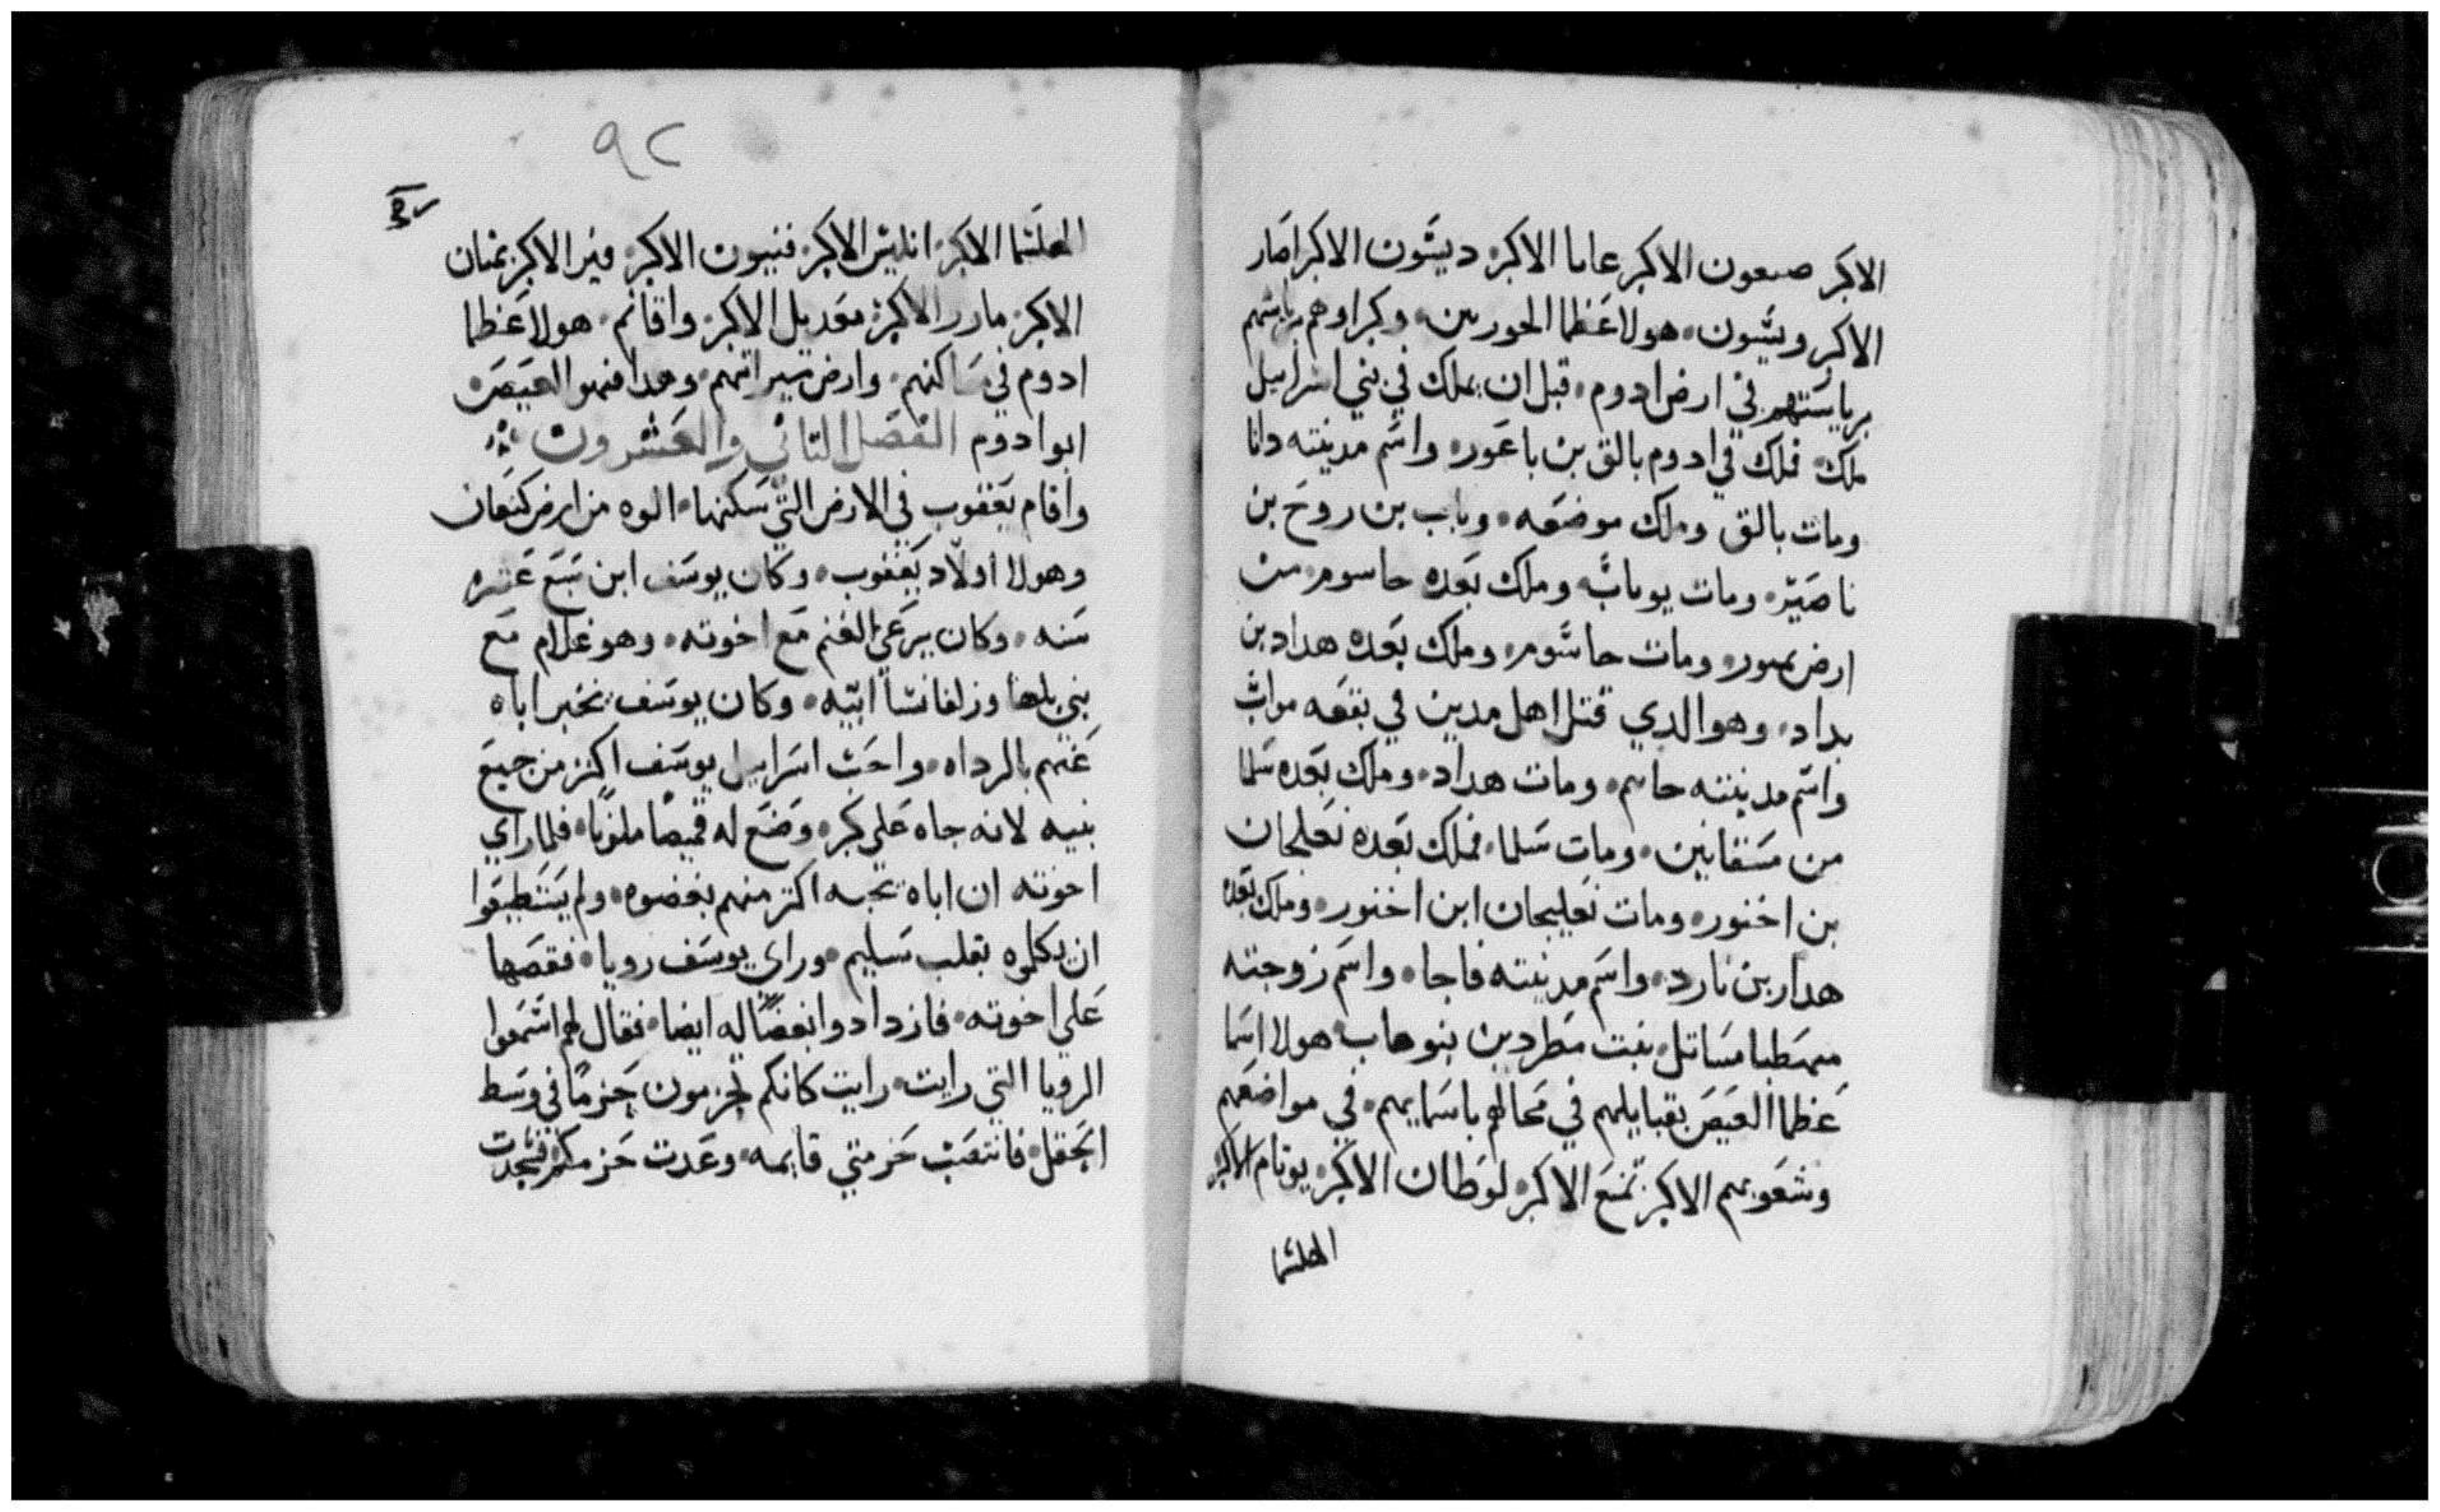 الاكبر صبعون الاكبر عابا الاكبر ديشون الاكبر اصار
الاكبر ويشون هولا عظما الحوريين وكبراوهم براستهم
برياستهم في ارض ادوم قبل ان يملك في بني اسراييل
ملك فملك في ادوم بالق بن باعور واسم مدينته دانا
ومات بالق وملك موضعه وباب بن روح بن
ناصير ومات يوباب وملك بعده حاسوم من
ارض ومات حاشوم وملك بعده هداد بن
بداد وهو الدي قتل اهل مدين في بقعه مواب
واسم مدينته حاسم ومات هداد وملك بعده سلما
من مسقابين ومات سلما فملك بعده نعلجان
بن اخنور ومات نعليجان ابن اخنور وملك بعده
هدار بن نارد واسم مدينته فاجا واسم زوجته
مهطبا مساتل بنت مطرد بن بنوهاب هولا اسما
عظما العيص بقبايلهم في محالهم باسمايهم في مواضعهم
وشعوبهم الاكبر تمنع الاكبر لوطان الاكبر يوتام الاكبر
الهلشما
٩٢
الهلشما الاكبر انليس الاكبر فنيون الاكبر فير الاكبر تمنان
الاكبر مادر الاكبر مقديل الاكبر واقانم هولا عظما
ادوم في مساكنهم وارض ميراتهم وهدا فهو العيص
ابو ادوم الفصل التاني والعشرون
واقام يعقوب في الارض التي سكنها ابوه من ارض كنعان
وهولا اولاد يعقوب وكان يوسف ابن سبع عشره
سنه وكان يرعي الغنم مع اخوته وهو غلام مع
بني بلها وزلفا نسا ابيه وكان يوسف يخبر اباه
عنهم بالرداه واحب اسراييل يوسف اكتر من جميع
بنيه لانه جاه علي كبر وضع له قميصا ملونا فلما راي
اخوته ان اباه يحبه اكتر منهم بغضوه ولم يستطيعوا
ان يكلموه بقلب سليم وراي يوسف رويا فقصها
علي اخوته فازدادوا بغضا له ايضا فقال لهم اسمعوا
الرويا التي رايت رايت كانكم تحزمون حزما في وسط
الحقل فانتصبت حزمتي قايمه وعدت حزمكم فسجدت